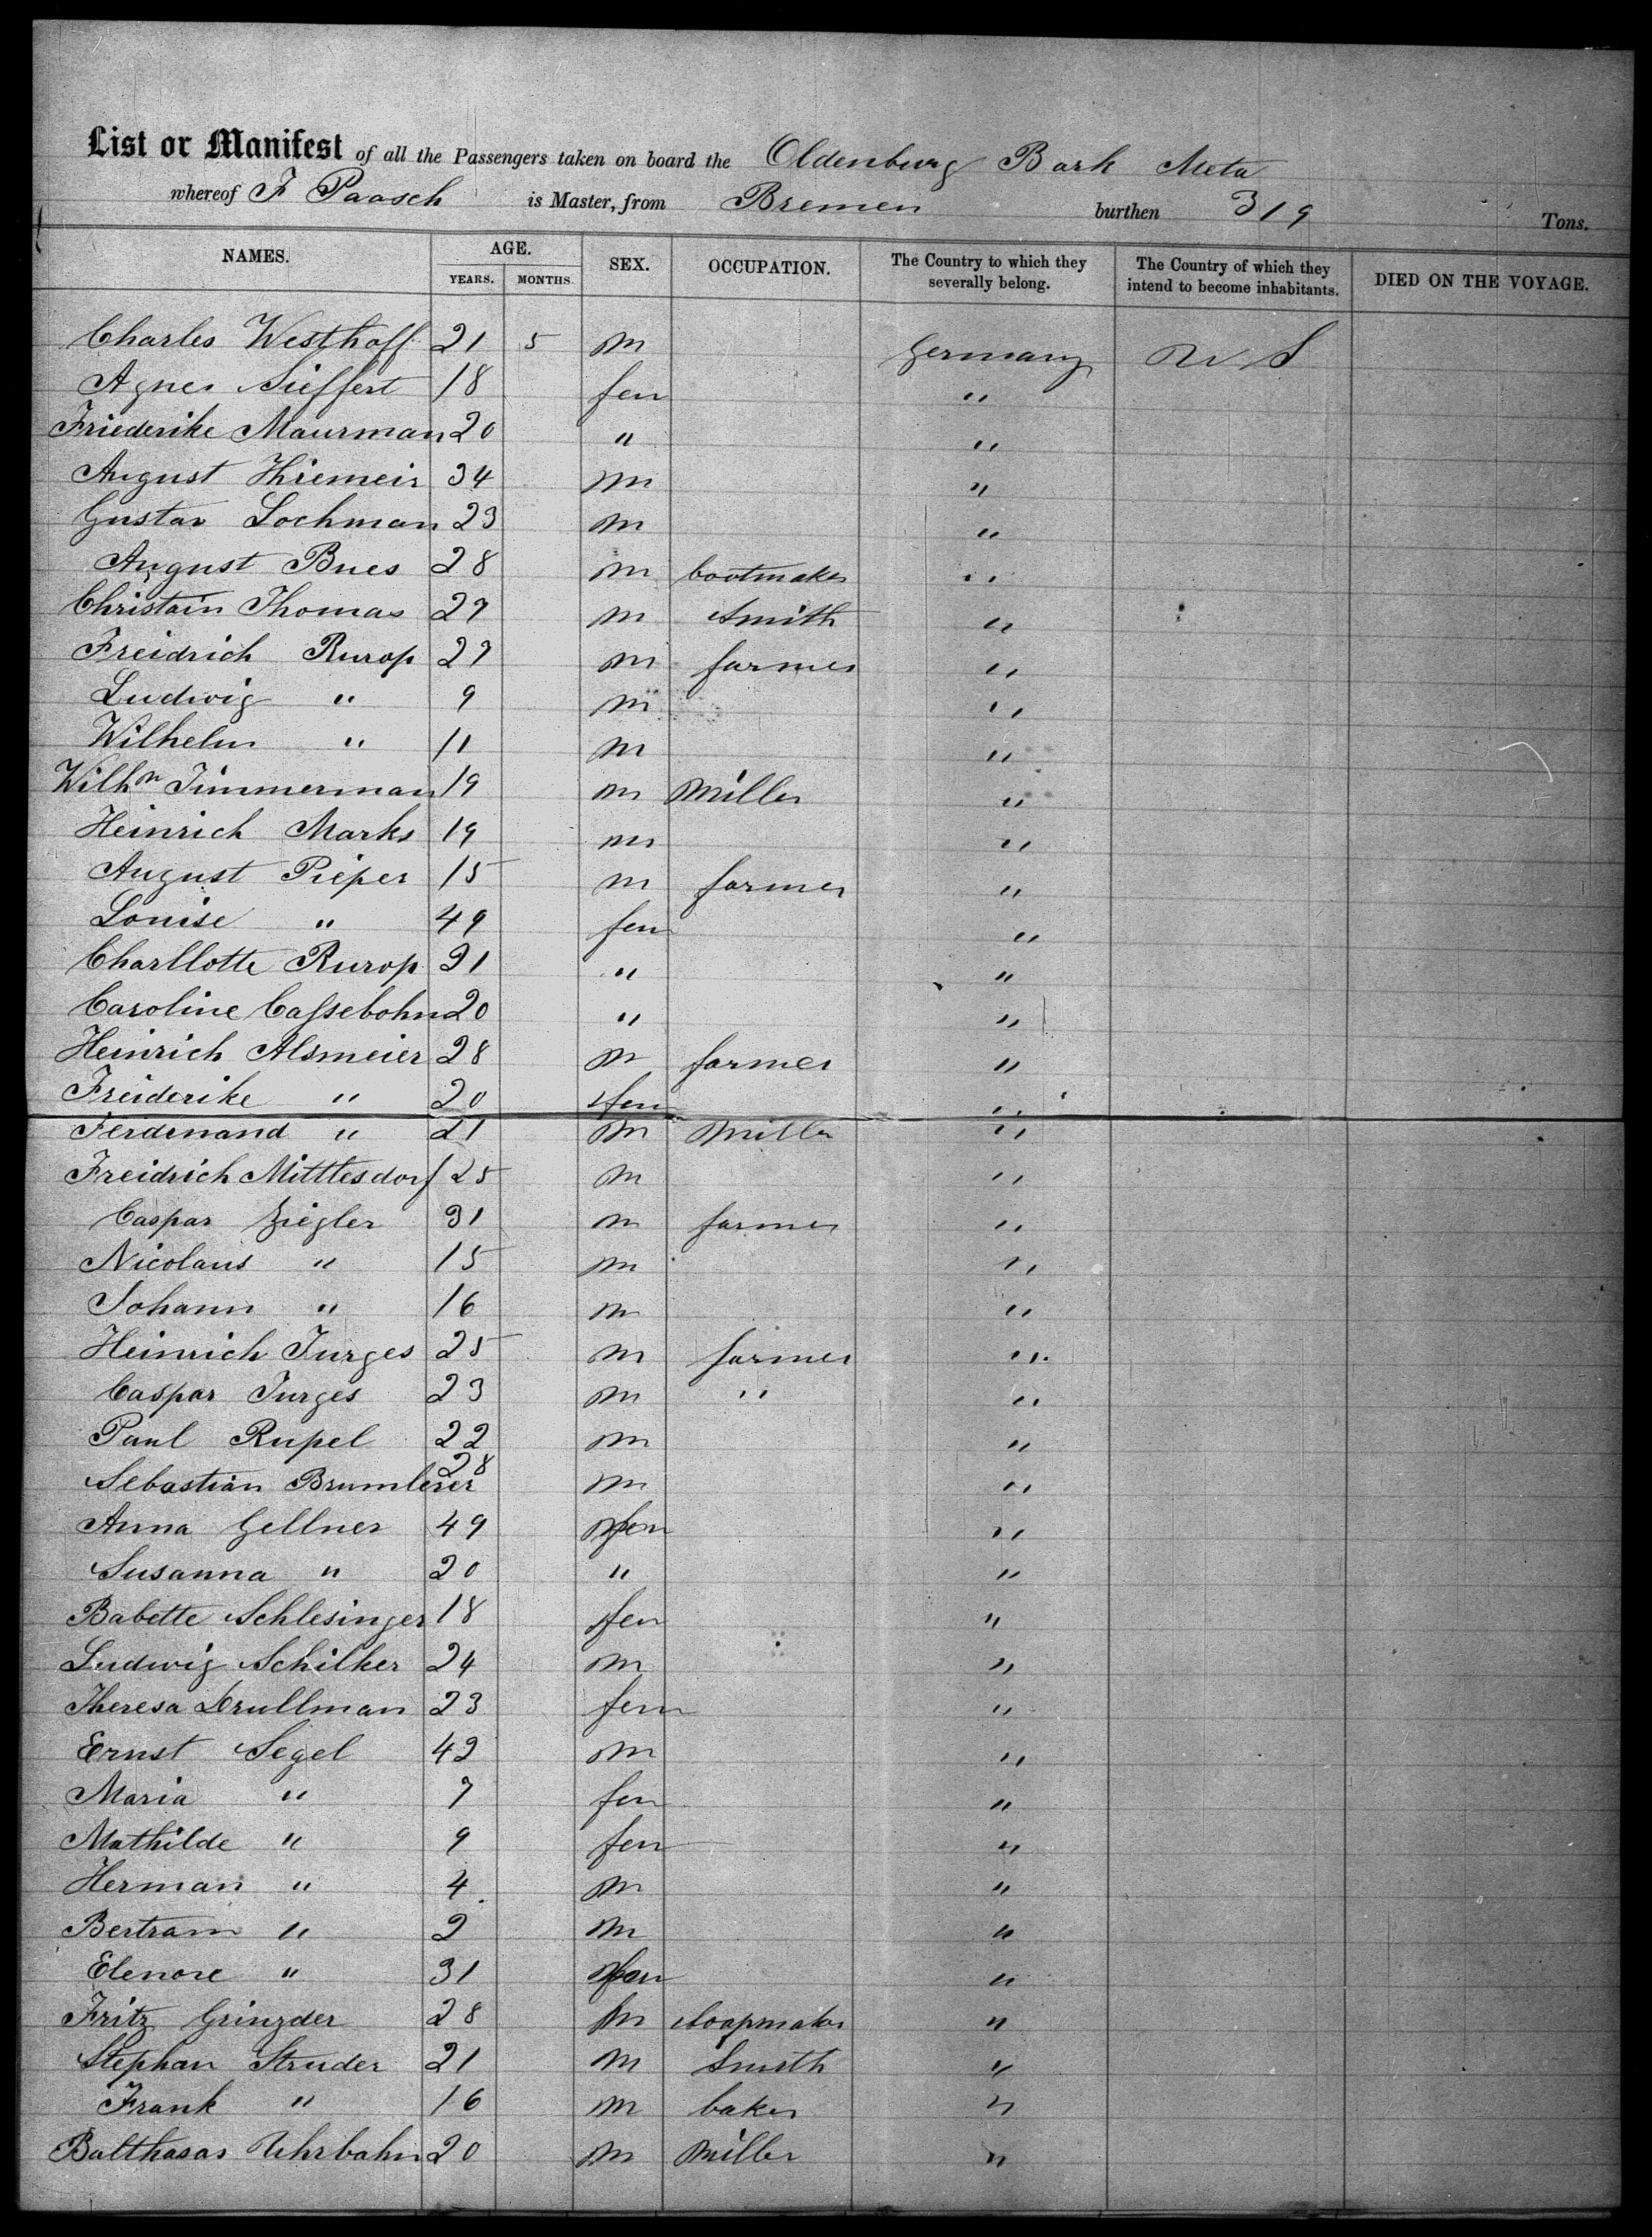 List or Manifest of all the Passengers taken on board the Oldenburg Bark Meta
whereof F Paasch is Master, from Bremen burthen 319 Tons.
NAMES. AGE. YEARS. MONTHS. SEX. OCCUPATION. The Country to which they severally belong. The Country of which they intend to become inhabitants. DIED ON THE VOYAGE.
Charles Westhoff 21 5 m Germany U S
Agnes Sieffert 18 fem "
Friederike Maurman 20 " "
August Thiemeir 34 m "
Gustav Lochman 23 m "
August Bues 28 m bootmaker "
Christain Thomas 27 m Smith "
Freidrich Rurop 27 m farmer "
Ludwig " 9 m "
Wilhelm " 11 m "
Wilhm Timmerman 19 m Miller "
Heinrich Marks 19 m "
August Pieper 15 m farmer "
Louise " 49 fem "
Charllotte Rurop 21 " "
Caroline Cassebohm 20 " "
Heinrich Alsmeier 28 m farmer "
Freiderike " 20 fem "
Ferdenand " 21 m Miller "
Freidrich Mittlesdorf 25 m "
Caspar Ziegler 31 m farmer "
Nicolaus " 15 m "
Johann " 16 m "
Heinrich Jurges 25 m farmer "
Caspar Jurges 23 m " "
Paul Rupel 22 m "
Sebastian Brumlerer 28 m "
Anna Gellner 49 fem "
Susanna " 20 " "
Babette Schlesinger 18 fem "
Ludwig Schilker 24 m "
Theresa Drullman 23 fem "
Ernst Segel 42 m "
Maria " 7 fem "
Mathilde " 9 fem "
Herman " 4 m "
Bertram " 2 m "
Elenore " 31 fem "
Fritz Grinzder 28 m Soapmaker "
Stephan Struder 21 m Smith "
Frank " 16 m baker "
Balthasar Uhrbahn 20 m Miller "